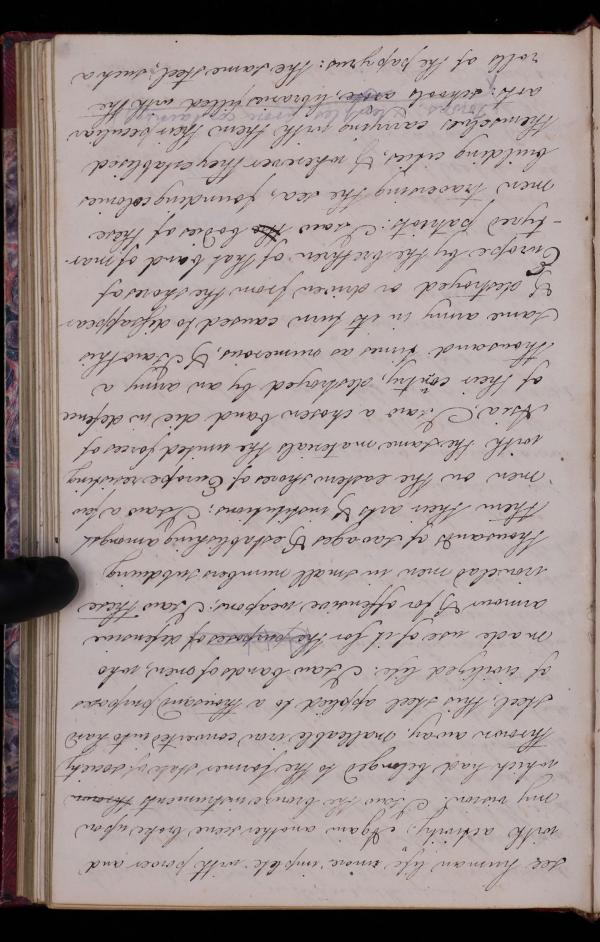 see human life more implete with power and
with activity. Again another scene broke upon
my vision. I saw the bronze instruments thrown
which had belonged to the former state of society
thrown away, malleable iron converted into hard
steel, this steel applied to a thousand purposes
of civilized life: I saw bands of men, who
made use of it for the purposes of defensive
armour & for offensive weapons, I saw these
iron-clad men in small numbers subduing
thousands of savages & establishing amongst
them their arts & institutions; I saw a few
men on the eastern shores of Europe resisting
with the same materials the united forces of
Asia, I saw a chosen band die in defence
of their contry, destroyed by an army a
thousand times as numerous, & I saw this
same army in its turn caused to disappear
& destroyed or driven from the shores of
Europe by the brethren of that band of mar-
-tyred patriots: I saw the bodies of these
men traversing the sea, founding colonies
building cities, & wherever they establised
themselves carrying with them their peculiar
Towns & temples arose containing
arts: schools arose, libraries filled with the
rolls of the papyrus: the same steel, such a